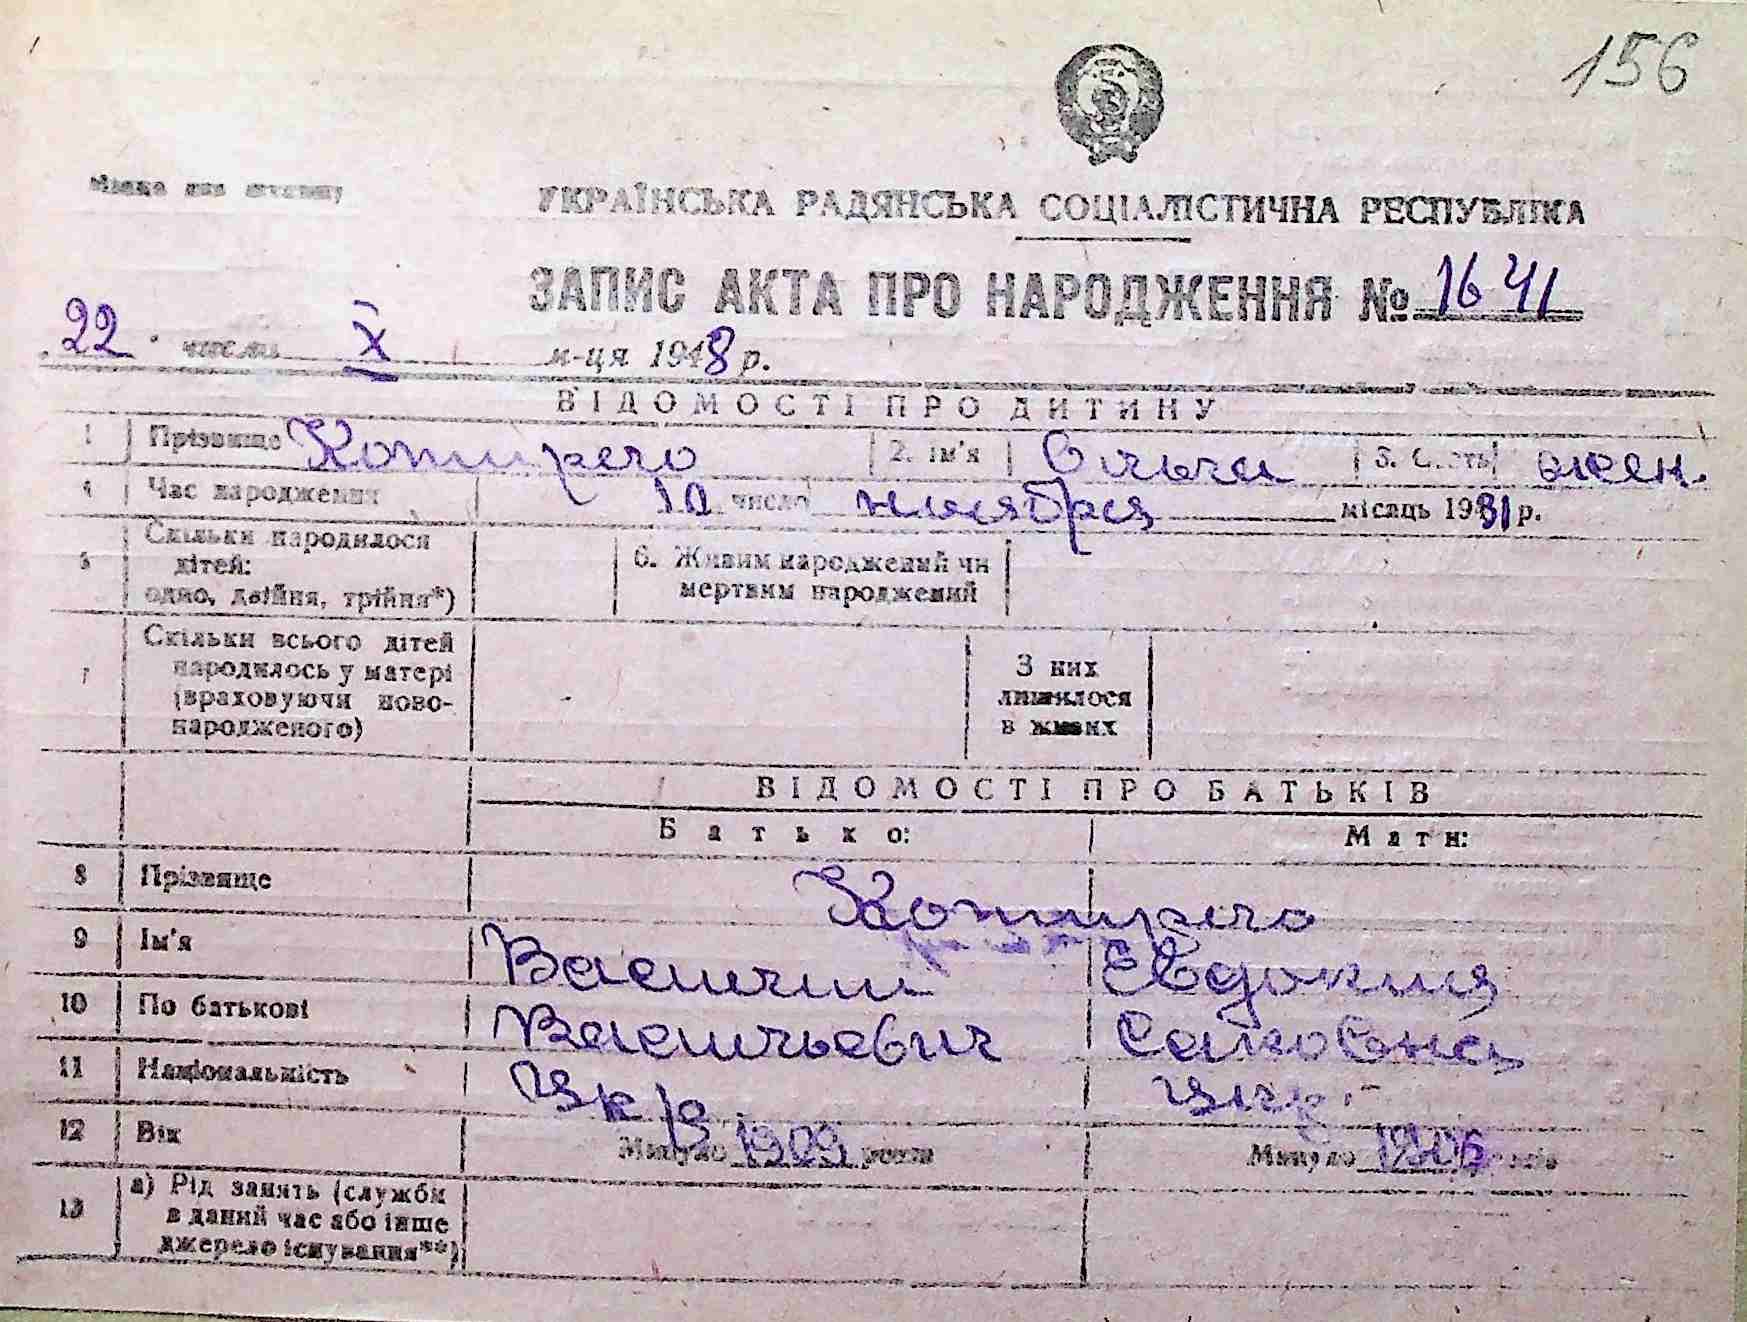 156
Місце для штампу
УКРАЇНСЬКА РАДЯНСЬКА СОЦІАЛІСТИЧНА РЕСПУБЛІКА
ЗАПИС АКТА ПРО НАРОДЖЕННЯ № 1641
22 числа X м-ця 1948 р.
ВІДОМОСТІ ПРО ДИТИНУ
1 Прізвище 2. Ім'я Ольга 3. Стать жен.
4 Час народження 10 число ноября місяць 1931 р.
5 Скільки народилося дітей: одно, двійня, трійня*) 6. Живим народжений чи мертвим народжений
7 Скільки всього дітей народилось у матері (враховуючи ново-народженого) З них лишилося в живих
ВІДОМОСТІ ПРО БАТЬКІВ
Батько: Мати:
8 Прізвище
9 Ім'я Василий Евдокия
10 По батькові Васильевич
11 Національність Укр. Укр.
12 Вік Минуло 1909 років Минуло 1906 років
13 а) Рід занять (служби в даний час або інше джерело існування**)